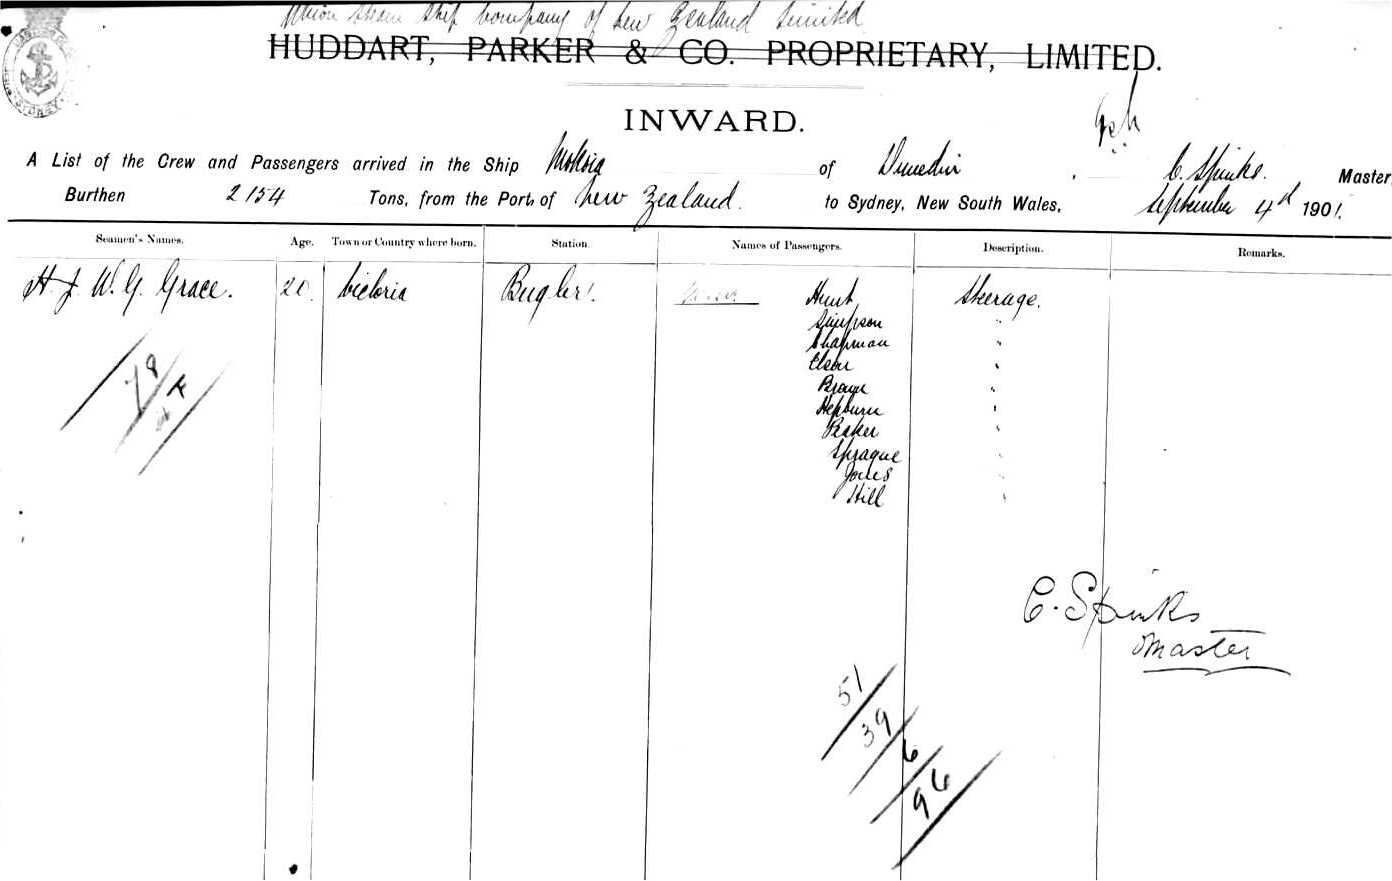 Union Steam Ship Company of New Zealand Limited
HUDDART, PARKER & CO. PROPRIETARY, LIMITED.
INWARD.
A List of the Crew and Passengers arrived in the Ship Mokoia of Dunedin C. Spinks. Master,
Burthen 2154 Tons, from the Port of New Zealand. to Sydney, New South Wales, September 4th 1901.
Seamen's Names. Age. Town or Country where born. Station. Names of Passengers. Description. Remarks.
H. J. W. G. Grace. 20. Victoria Bugler. Hunt Steerage.
Simpson "
Chapman "
"
"
Hepburn "
Baker "
Sprague "
Jones "
Hill "
78
F
C. Spinks
Master
51
39
6
96
SYDNEY